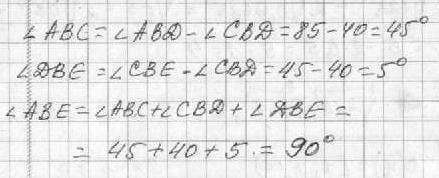 ∠ABC = ∠ABD - ∠CBD = 85 - 40 = 45°
∠DBE = ∠CBE - ∠CBD = 45 - 40 = 5°
∠ABE = ∠ABC + ∠CBD + ∠DBE =
= 45 + 40 + 5 = 90°